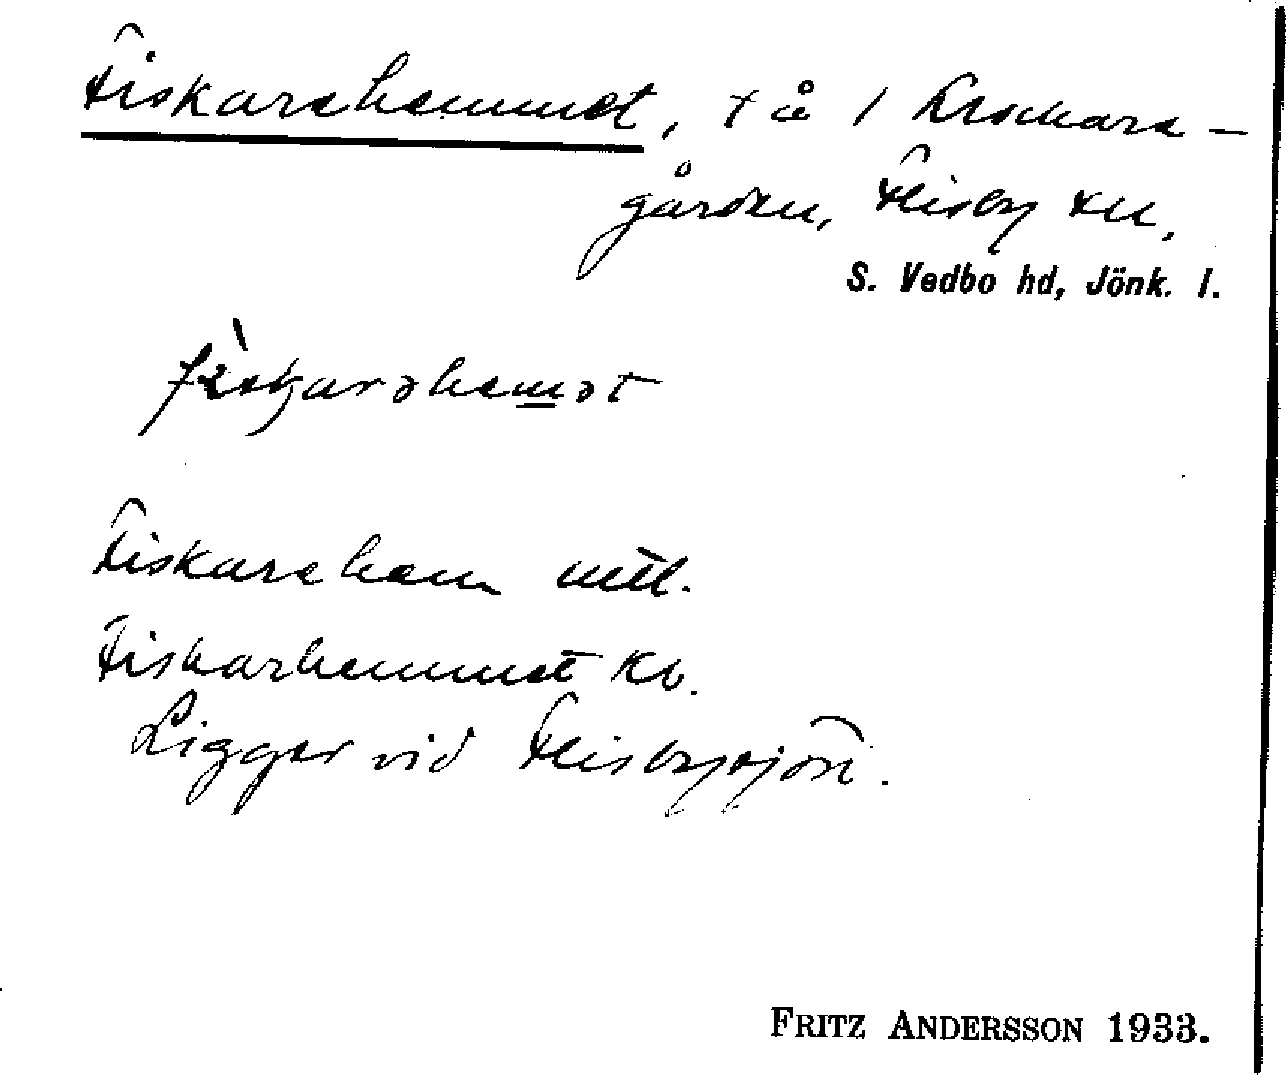 Fiskarehemmet, t å 1 Krockare-
gården, Flisby sn,
S. Vedbo hd, Jönk. l.
Fiskarehem mtl.
Fiskarhemmet Kb.
Ligger vid Flisbysjön.
FRITZ ANDERSSON 1933.